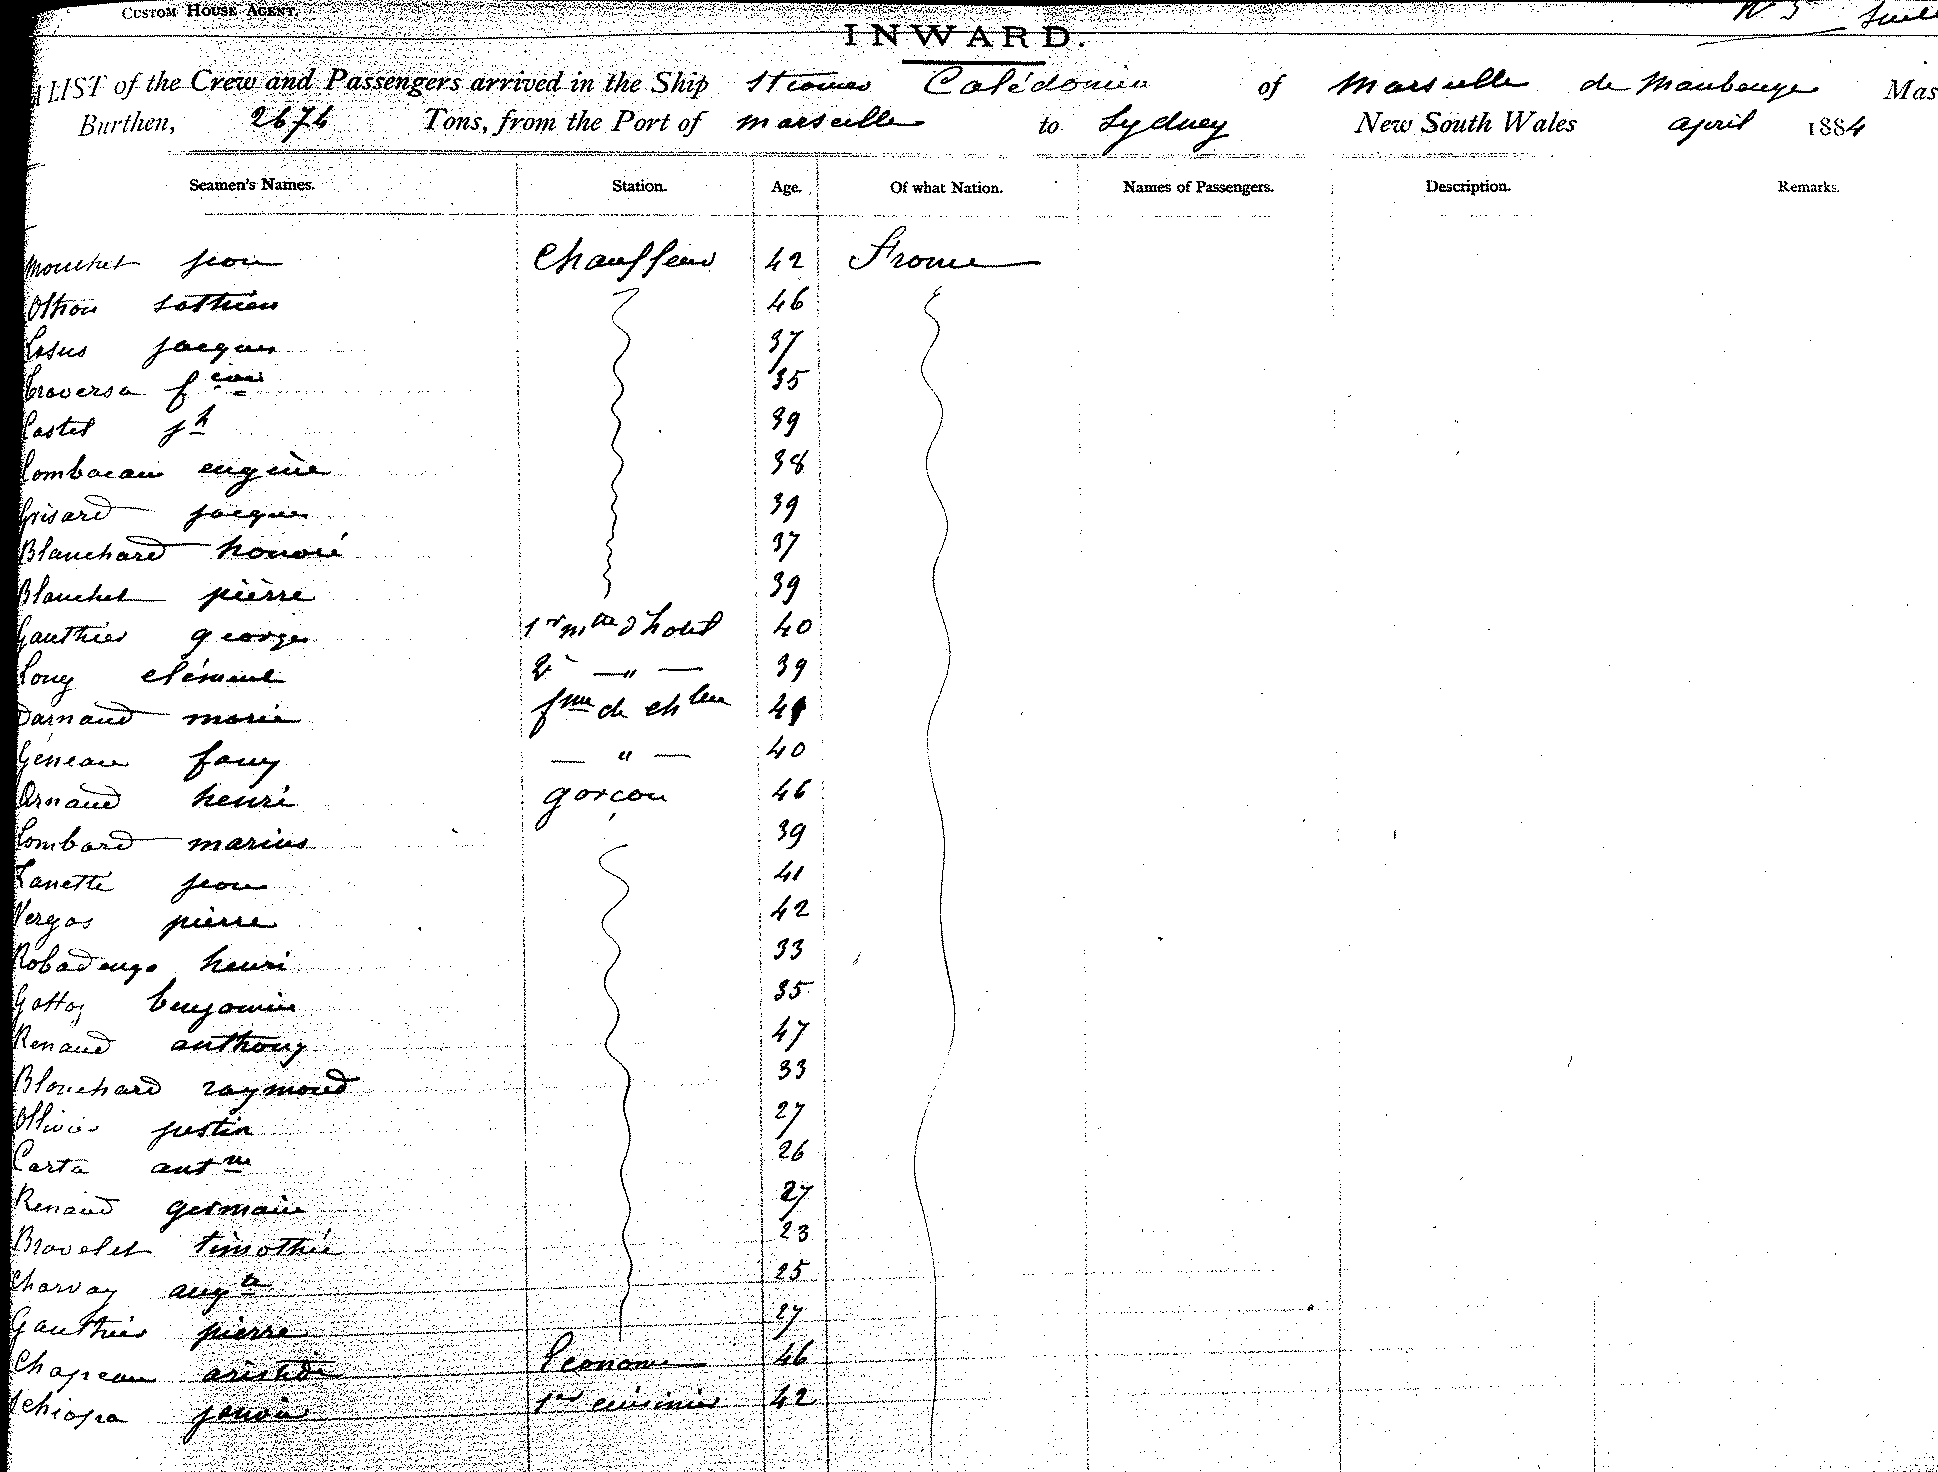 CUSTOM HOUSE AGENT.
INWARD.
LIST of the Crew and Passengers arrived in the Ship Steamer Calédonien of Marseille de Maubeuge Mas
Burthen, 2676 Tons, from the Port of Marseille to Sydney New South Wales april 1884
Seamen's Names. Station. Age. Of what Nation. Names of Passengers. Description. Remarks.
Mouchet jean Chauffeur 42 France
Othon 46
jacques 37
Traversa 35
Castel jh 39
Lombacau eugène 38
Grisard jacques 39
Blanchard honoré 37
Blanchet pierre 39
Gauthier georges 1er mtre d'hotel 40
Long clément 2e — " — 39
Darnaud marie fme de chbre 41
Géneau fany — " — 40
Arnaud henri garçon 46
Lombard marius 39
Lanette jean 41
Vergas pierre 42
henri 33
benjamin 35
Renaud anthony 47
Blanchard raymond 33
Ollivier justin 27
Carta antne 26
Renaud germain 27
Bravelet timothée 23
Charvay augte 25
Gauthier pierre 27
Chapeau aristide Econome 46
Schiapa 1er cuisinier 42